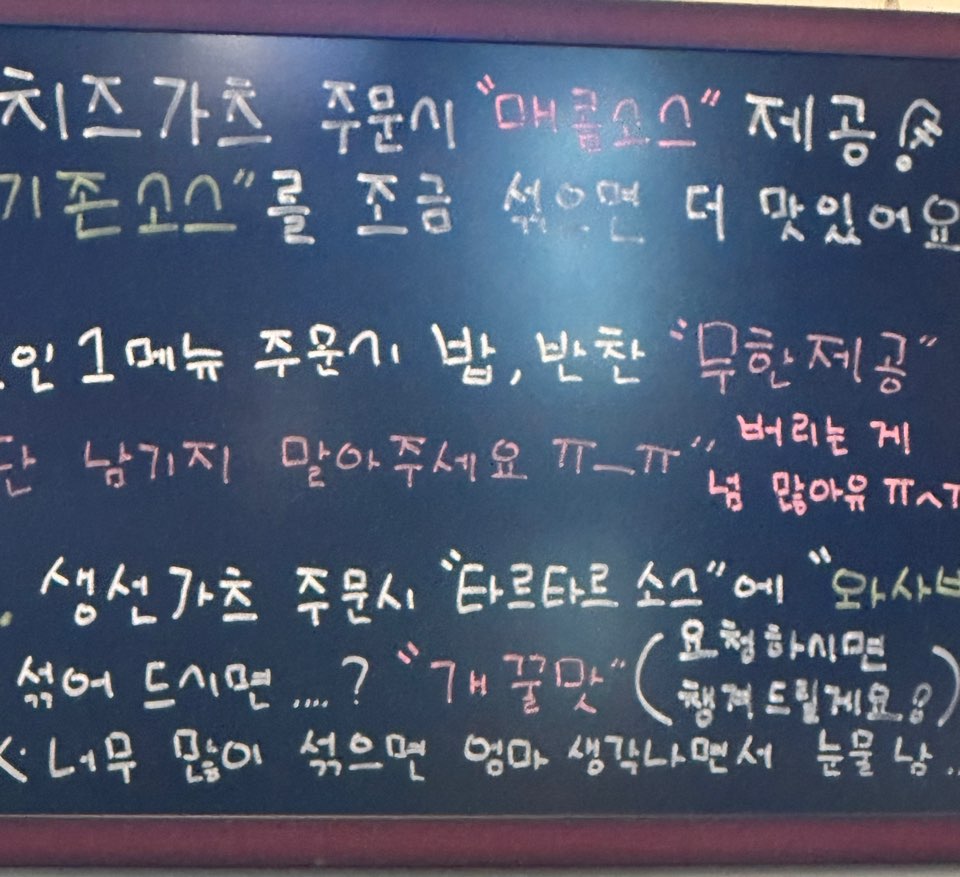 치즈가츠 주문시 "매콤소스" 제공
기존소스"를 조금 섞으면 더 맛있어요
인 1메뉴 주문기 밥, 반찬 "무한제공"
단 남기지 말아주세요 ㅠ_ㅠ" 버리는 게
넘 많아유 ㅠㅅㅠ
생선가츠 주문시 "타르타르 소스"에 "와사비
섞어 드시면....? "개꿀맛" (요청하시면
챙겨드릴게요?)
너무 많이 섞으면 엄마 생각나면서 눈물 남..